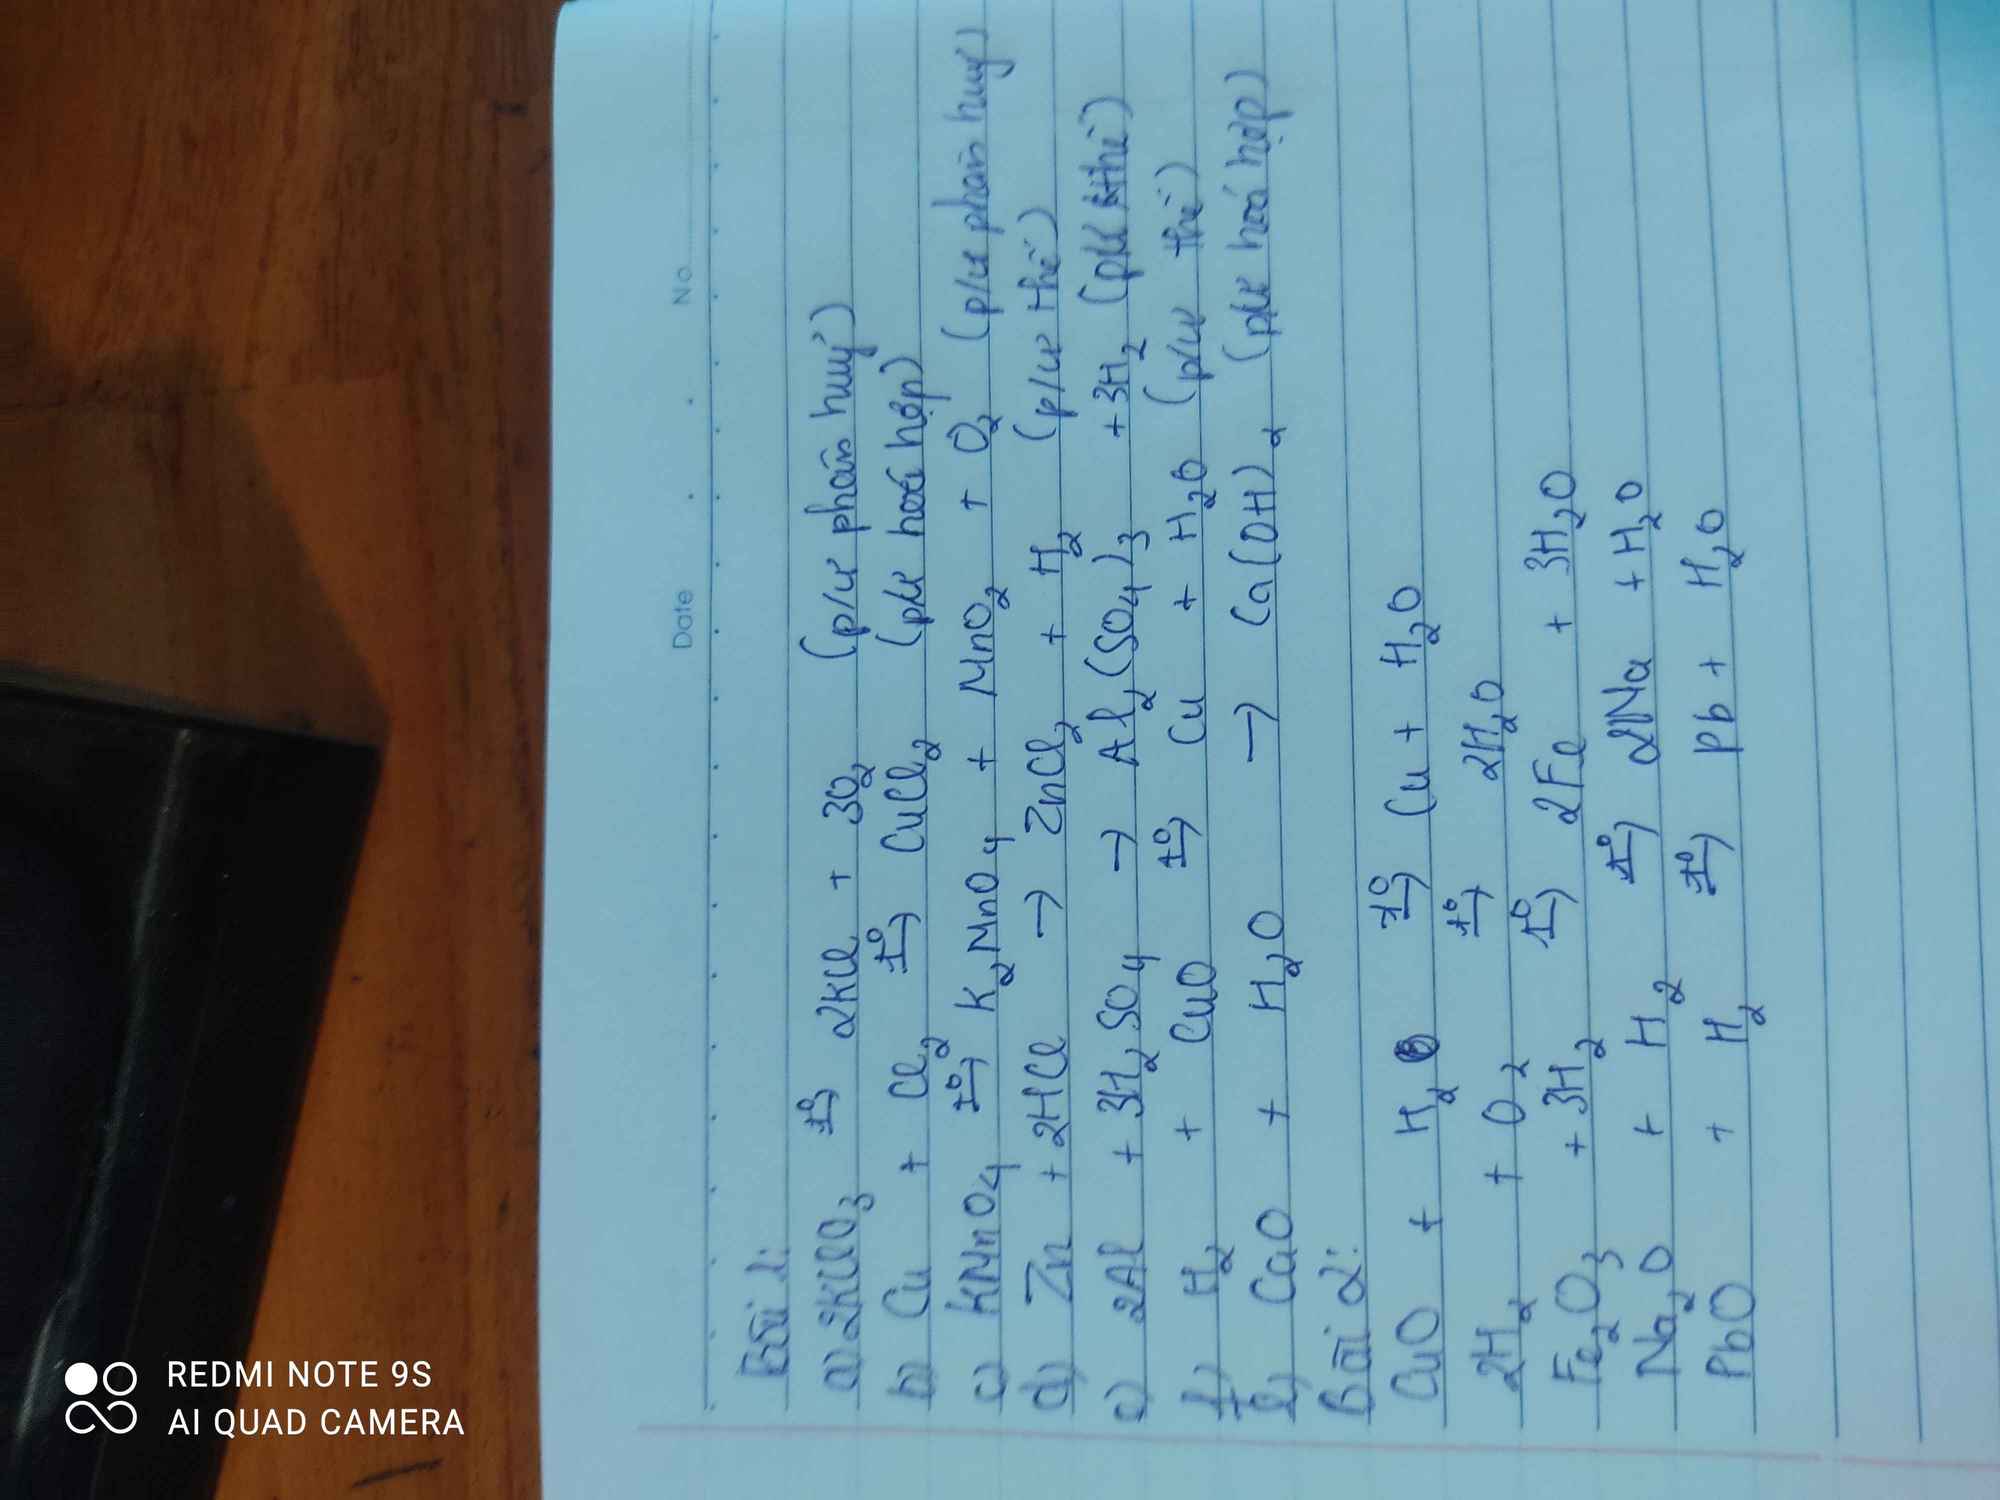 Date No
Bài 1:
a) 2KClO₃ t°→ 2KCl + 3O₂ (p/ư phân huỷ)
b) Cu + Cl₂ t°→ CuCl₂ (pư hoá hợp)
c) KMnO₄ t°→ K₂MnO₄ + MnO₂ + O₂ (p/ư phân huỷ)
d) Zn + 2HCl → ZnCl₂ + H₂ (p/ư thế)
e) 2Al + 3H₂SO₄ → Al₂(SO₄)₃ + 3H₂ (pư thế)
f) H₂ + CuO t°→ Cu + H₂O (p/ư thế)
CaO + H₂O → Ca(OH)₂ (pư hoá hợp)
Bài 2:
CuO + H₂ t°→ Cu + H₂O
2H₂ + O₂ t°→ 2H₂O
Fe₂O₃ + 3H₂ t°→ 2Fe + 3H₂O
Na₂O + H₂ t°→ 2Na + H₂O
PbO + H₂ t°→ Pb + H₂O
REDMI NOTE 9S
AI QUAD CAMERA